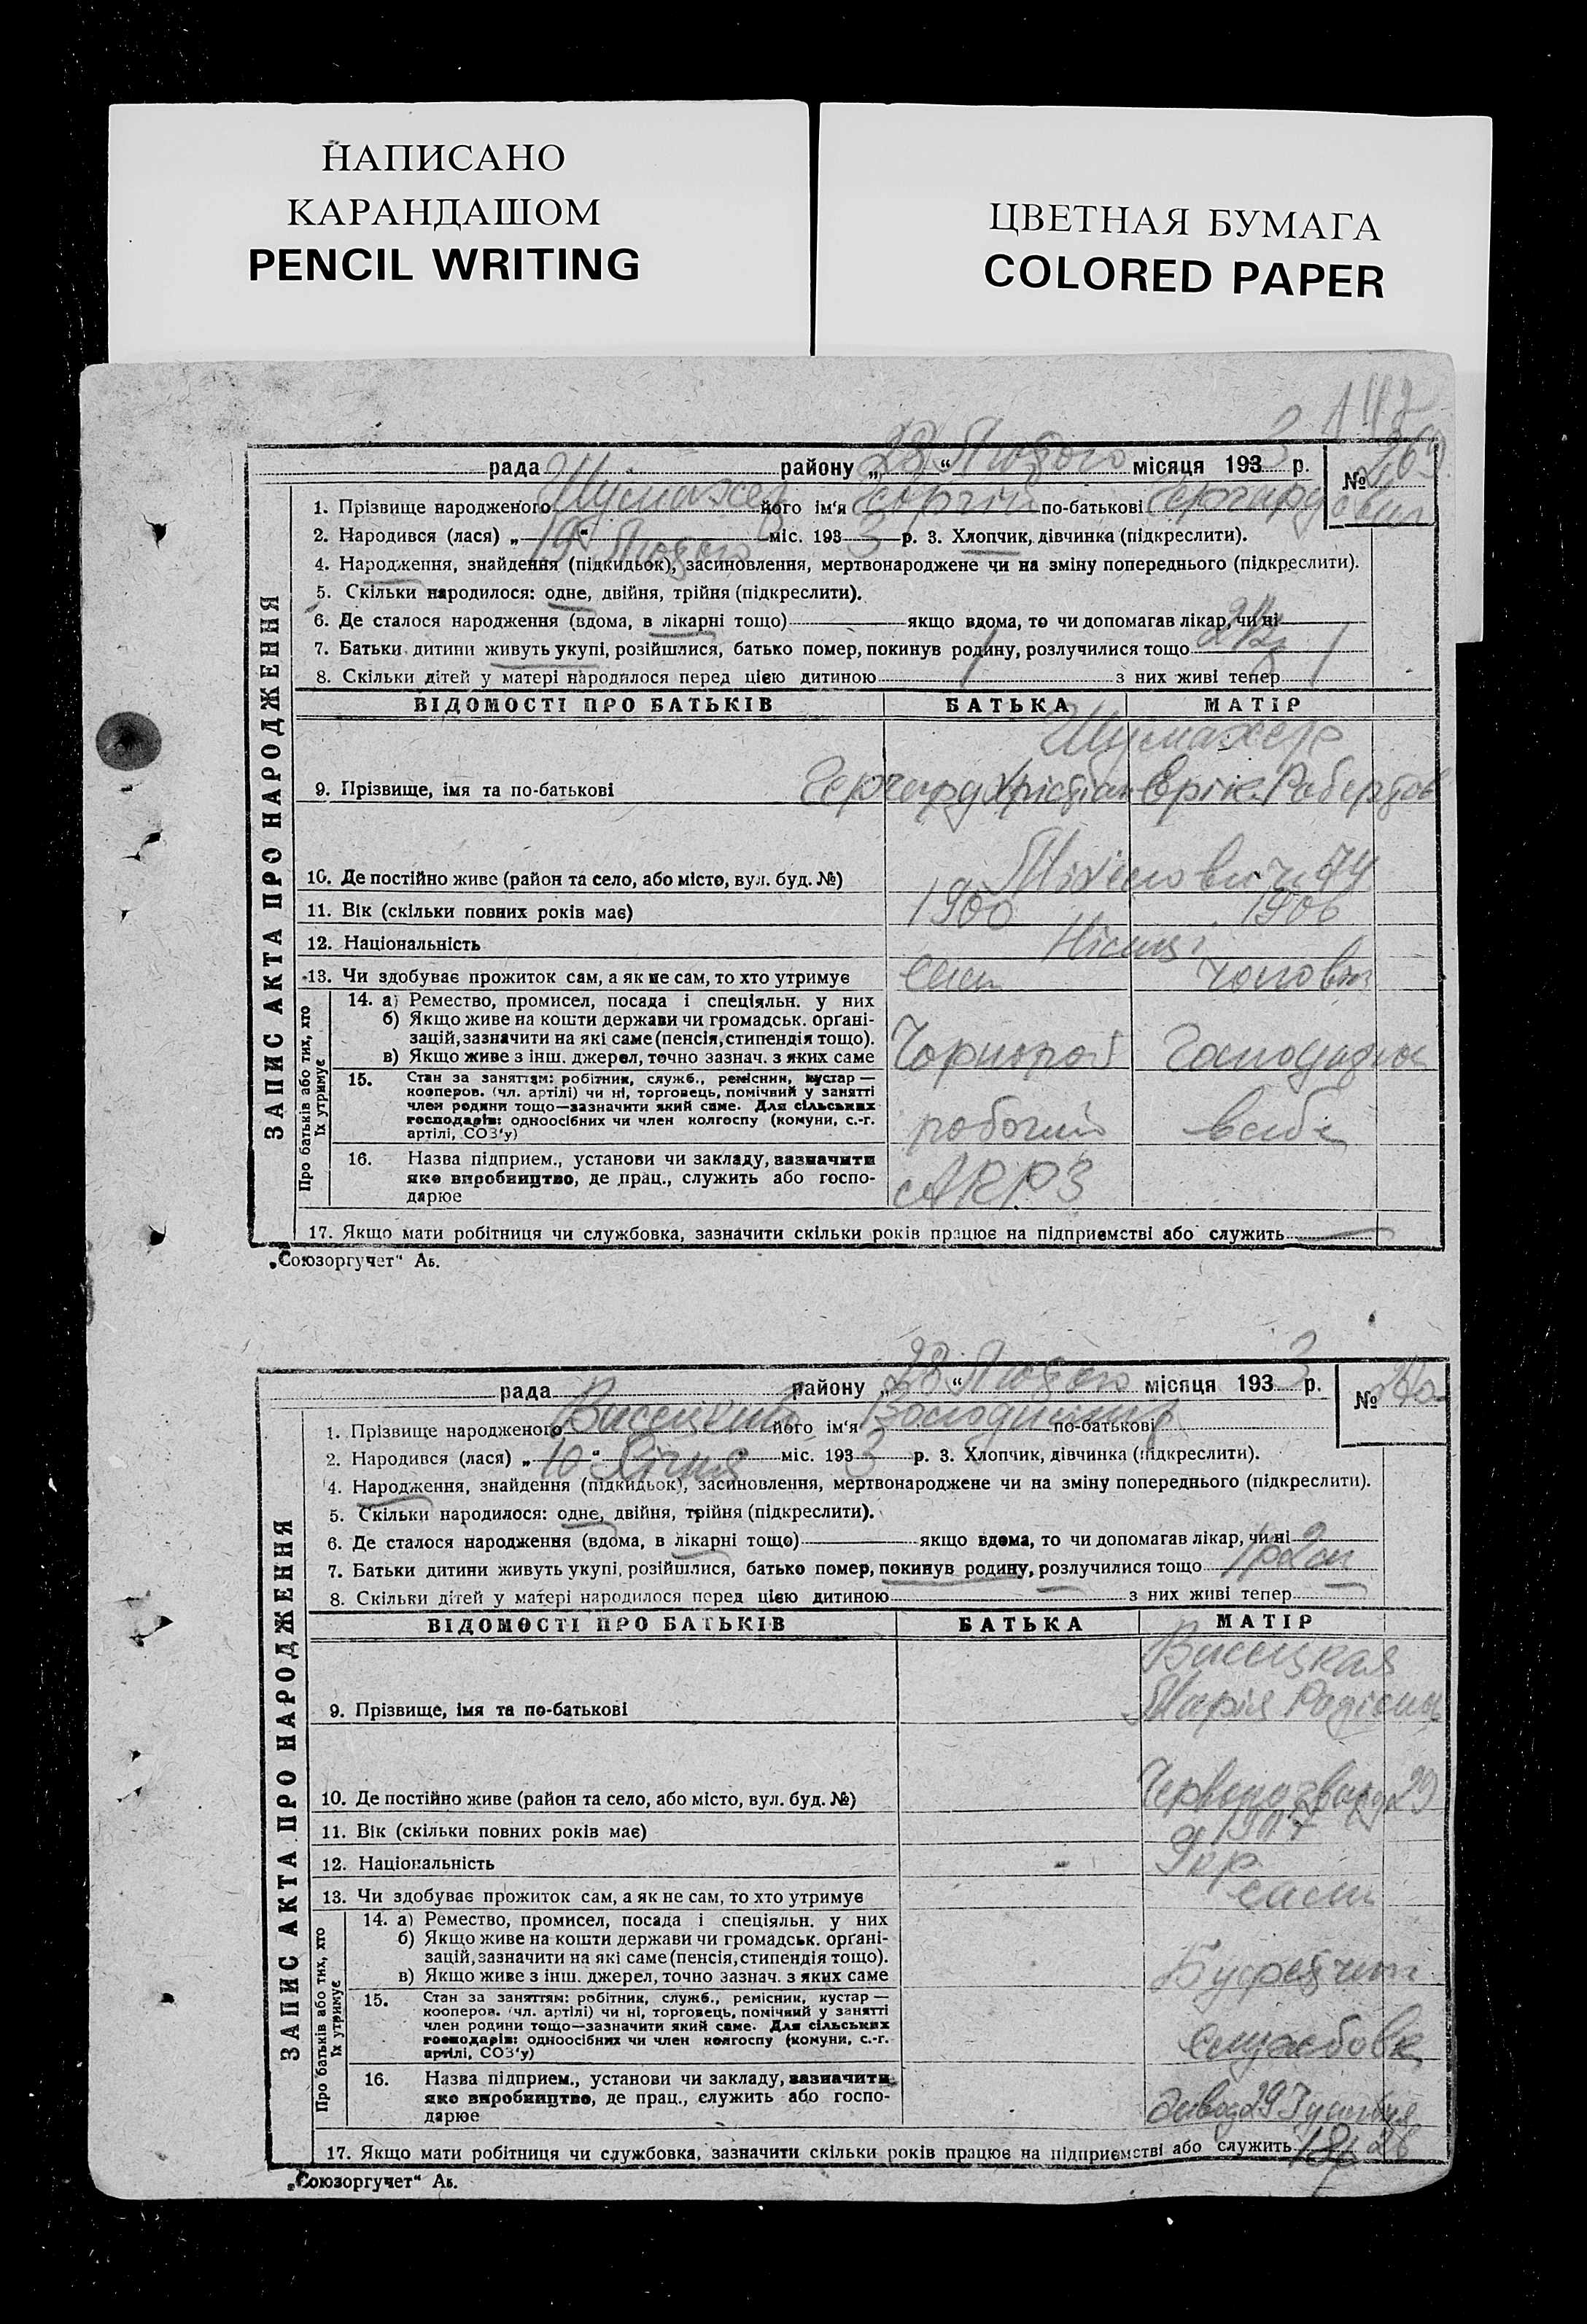 НАПИСАНО
КАРАНДАШОМ
PENCIL WRITING
ЦВЕТНАЯ БУМАГА
COLORED PAPER
ЗАПИС АКТА ПРО НАРОДЖЕННЯ
рада району „28“ Лютого місяця 1933 р. № 269
1. Прізвище народженого Шумахер його ім‘я по-батькові
2. Народився (лася) „ “ Лютого міс. 1933 р. 3. Хлопчик, дівчинка (підкреслити).
4. Народження, знайдення (підкидьок), засиновлення, мертвонароджене чи на зміну попереднього (підкреслити).
5. Скільки народилося: одне, двійня, трійня (підкреслити).
6. Де сталося народження (вдома, в лікарні тощо) якщо вдома, то чи допомагав лікар, чи ні
7. Батьки дитини живуть укупі, розійшлися, батько помер, покинув родину, розлучилися тощо
8. Скільки дітей у матері народилося перед цією дитиною 1 з них живі тепер 1
ВІДОМОСТІ ПРО БАТЬКІВ БАТЬКА МАТІР
Шумахер
9. Прізвище, імя та по-батькові Герхард Христіан Еріка Робертов
10. Де постійно живе (район та село, або місто, вул. буд. №) 74
11. Вік (скільки повних років має) 1900 1906
12. Національність Німці
13. Чи здобуває прожиток сам, а як не сам, то хто утримує сам чоловік
Про батьків або тих, хто їх утримує
14. а) Ремество, промисел, посада і спеціяльн. у них
б) Якщо живе на кошти держави чи громадськ. орґані-
зацій, зазначити на які саме (пенсія, стипендія тощо).
в) Якщо живе з інш. джерел, точно зазнач. з яких саме Чорнороб
15. Стан за заняттям: робітник, служб., ремісник, кустар —
кооперов. (чл. артілі) чи ні, торговець, помічний у занятті
член родини тощо—зазначити який саме. Для сільських
господарів: одноосібних чи член колгоспу (комуни, с.-г.
артілі, СОЗ‘у) робочий
16. Назва підприєм., установи чи закладу, зазначити
яке виробництво, де прац., служить або госпо-
дарює АКРЗ
17. Якщо мати робітниця чи службовка, зазначити скільки років працює на підприємстві або служить
„Союзоргучет“ Аь.
ЗАПИС АКТА ПРО НАРОДЖЕННЯ
рада району „28“ Лютого місяця 1933 р. №
1. Прізвище народженого Висецкий його ім‘я Володимир по-батькові
2. Народився (лася) „10“ Січня міс. 1933 р. 3. Хлопчик, дівчинка (підкреслити).
4. Народження, знайдення (підкидьок), засиновлення, мертвонароджене чи на зміну попереднього (підкреслити).
5. Скільки народилося: одне, двійня, трійня (підкреслити).
6. Де сталося народження (вдома, в лікарні тощо) якщо вдома, то чи допомагав лікар, чи ні
7. Батьки дитини живуть укупі, розійшлися, батько помер, покинув родину, розлучилися тощо
8. Скільки дітей у матері народилося перед цією дитиною з них живі тепер
ВІДОМОСТІ ПРО БАТЬКІВ БАТЬКА МАТІР
Висецкая
9. Прізвище, імя та по-батькові Марія
10. Де постійно живе (район та село, або місто, вул. буд. №) 29
11. Вік (скільки повних років має) 1907
12. Національність Укр
13. Чи здобуває прожиток сам, а як не сам, то хто утримує сама
Про батьків або тих, хто їх утримує
14. а) Ремество, промисел, посада і спеціяльн. у них
б) Якщо живе на кошти держави чи громадськ. орґані-
зацій, зазначити на які саме (пенсія, стипендія тощо).
в) Якщо живе з інш. джерел, точно зазнач. з яких саме
15. Стан за заняттям: робітник, служб., ремісник, кустар —
кооперов. (чл. артілі) чи ні, торговець, помічний у занятті
член родини тощо—зазначити який саме. Для сільських
господарів: одноосібних чи член колгоспу (комуни, с.-г.
артілі, СОЗ‘у) службовк
16. Назва підприєм., установи чи закладу, зазначити
яке виробництво, де прац., служить або госпо-
дарює
17. Якщо мати робітниця чи службовка, зазначити скільки років працює на підприємстві або служить
„Союзоргучет“ Аь.